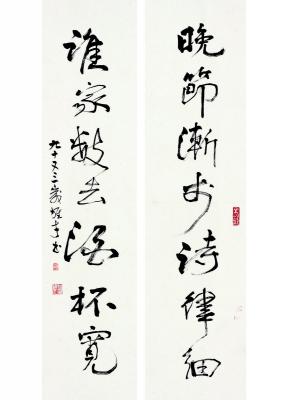 晚節漸於詩律細
誰家數去酒杯寬
九十又三歲